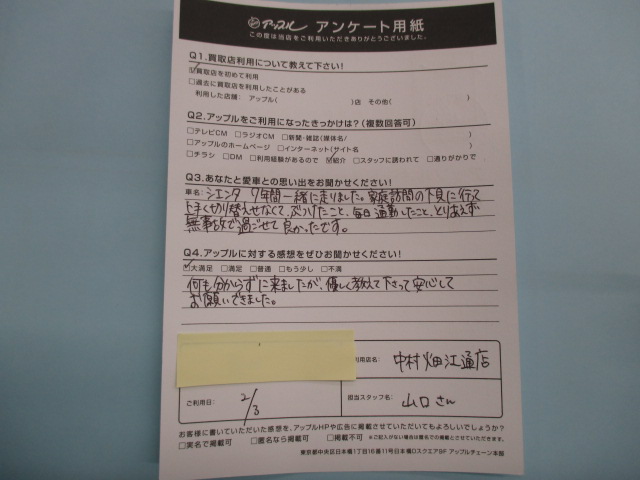 アップル アンケート用紙
この度は当店をご利用いただきありがとうございました。
Q1.買取店利用について教えて下さい!
☑買取店を初めて利用
□過去に買取店を利用したことがある
利用した店舗: アップル( )店 その他( )
Q2.アップルをご利用になったきっかけは?(複数回答可)
□テレビCM □ラジオCM □新聞・雑誌(媒体名/ )
□アップルのホームページ □インターネット(サイト名 )
□チラシ □DM □利用経験があるので ☑紹介 □スタッフに誘われて □通りがかりで
Q3.あなたと愛車との思い出をお聞かせください!
車名: シエンタ 7年間一緒に走りました。家庭訪問の下見に行って
上手く切り替えせなくて、ぶつけたこと、毎日通勤したこと、とりあえず
無事故で過ごせて良かったです。
Q4.アップルに対する感想をぜひお聞かせください!
☑大満足 □満足 □普通 □もう少し □不満
何も分からずに来ましたが、優しく教えて下さって安心して
お願いできました。
利用店名: 中村畑江通店
ご利用日: 2/3
担当スタッフ名: 山口さん
お客様に書いていただいた感想を、アップルHPや広告に掲載させていただいてもよろしいでしょうか?
□実名で掲載可 □匿名なら掲載可 □掲載不可 ※ご記入がない場合は匿名での掲載とさせていただきます。
東京都中央区日本橋1丁目16番11号日本橋Dスクエア8F アップルチェーン本部